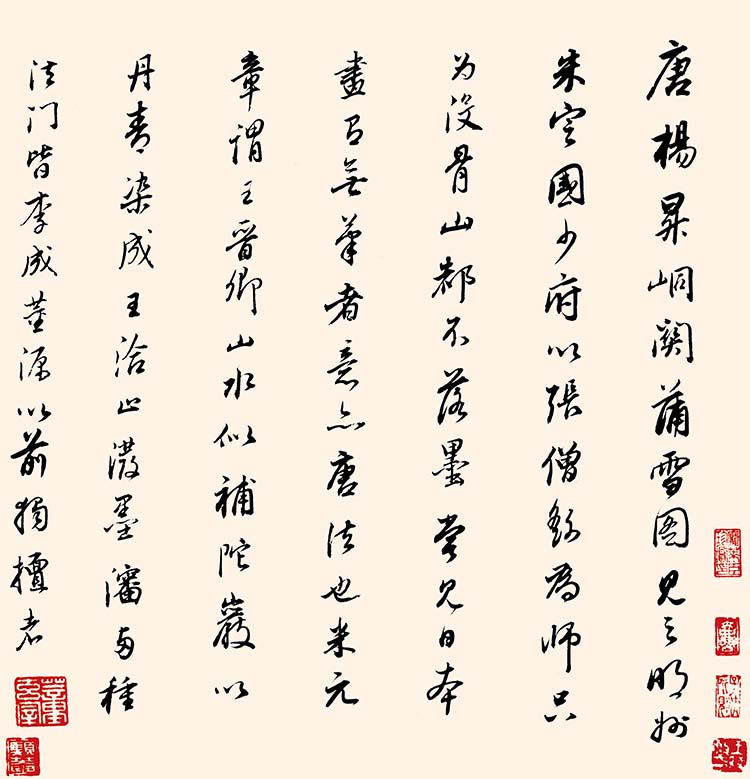 唐楊昇峒關蒲雪图見之明州
朱定國少府以張僧繇為师只
为没骨山都不落墨嘗見日本
畫有無筆者意亦唐法也米元
章謂王晉卿山水似補陀巖以
丹青染成王洽止潑墨瀋 種
法门皆李成董源以前獨擅者